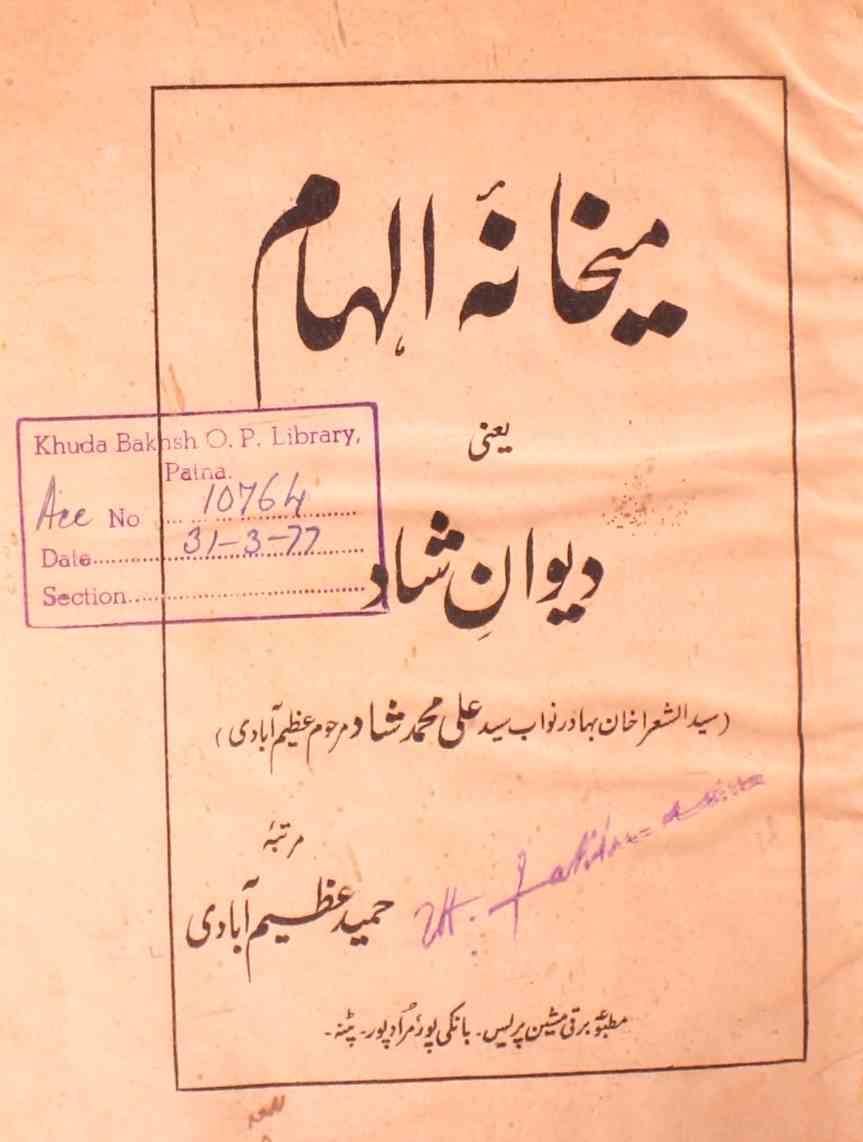 میخانۂ الہام
یعنی
دیوانِ شاد
(سید الشعرا خان بہادر نواب سید علی محمد شاد مرحوم عظیم آبادی)
مرتبۂ
حمید عظیم آبادی
مطبوعہ برقی مشین پریس۔ بانکی پور، مُراد پور۔ پٹنہ۔
Khuda Bakhsh O. P. Library,
Patna.
Acc No 10764
Date 31-3-77
Section